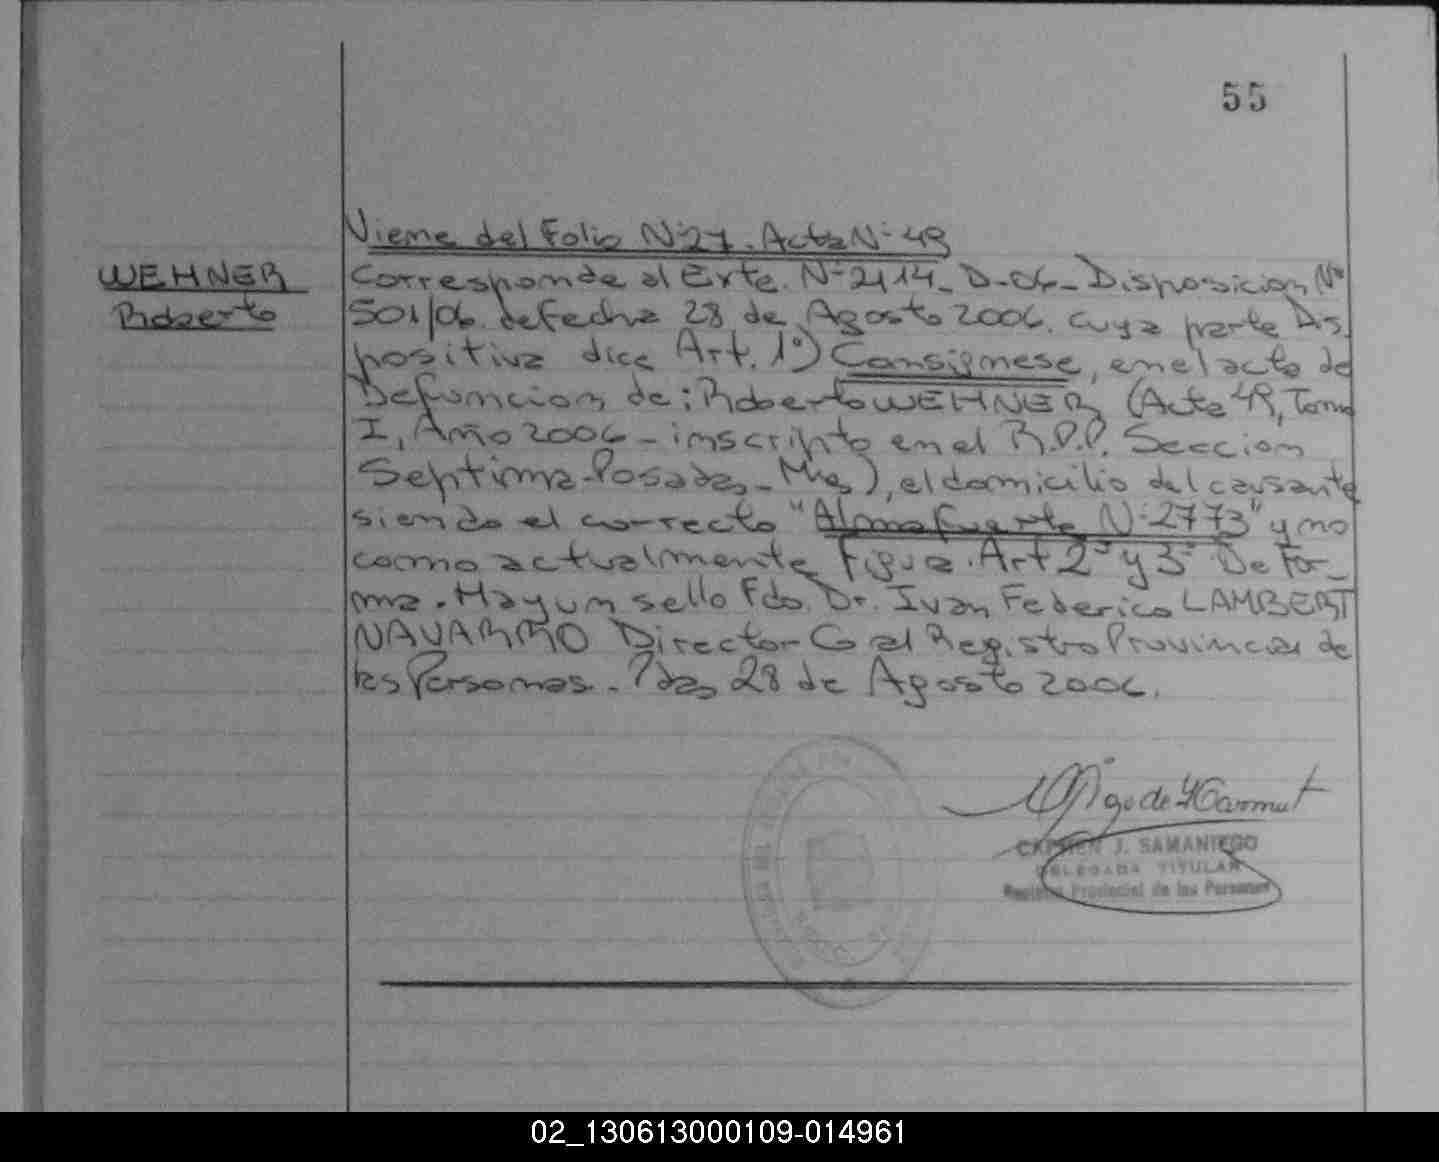 55
Viene del Folio N° 27. Acta N° 49
WEHNER
Roberto
Corresponde al Exte. N° 2114- D-06- Disposicion N°
501/06. de fecha 28 de Agosto 2006. cuya parte Dis
positiva dice Art. 1°) Consignese, en el acta de
Defuncion de: Roberto WEHNER (Acta 49, Tomo
I, Año 2006 - inscripto en el R.P.P. Seccion
Septima-Posadas-Mnes), el domicilio del causante
siendo el correcto "Almafuerte N° 2773" y no
como actualmente figura. Art 2° y 3° De For_
ma. Hay un sello Fdo. Dr. Ivan Federico LAMBERT
NAVARRO Director Gral Registro Provincial de
las Personas. Pdas, 28 de Agosto 2006.
CARMEN J. SAMANIEGO
DELEGADA TITULAR
Registro Provincial de las Personas
02_130613000109-014961